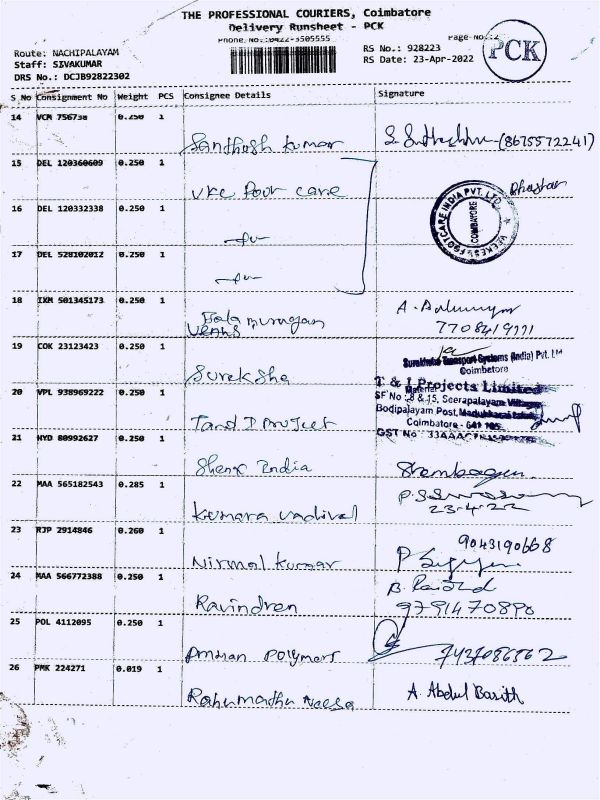 THE PROFESSIONAL COURIERS, Coimbatore
Delivery Runsheet - PCK
Phone No.:0422-3505555
Page-No.:2
PCK
Route: NACHIPALAYAM
Staff: SIVAKUMAR
DRS No.: DCJB92822302
RS No.: 928223
RS Date: 23-Apr-2022
S No Consignment No Weight PCS Consignee Details Signature
14 VCM 756738 0.250 1 Santhosh kumar (8675572241)
15 DEL 120360609 0.250 1 VKC Foot care
VEEKESY FOOTCARE INDIA PVT. LTD.
COIMBATORE
16 DEL 120332338 0.250 1
17 DEL 528102012 0.250 1
18 IXM 501345173 0.250 1 Bala murugan
7708419111
19 COK 23123423 0.250 1 Sureksha
Transport Systems (India) Pvt. Ltd
Coimbatore
20 VPL 938969222 0.250 1 T and I Project
T & I Projects Limited
SF No : 8 & 15, Seerapalayam Village
Bodipalayam Post,
Coimbatore - 641 105
GST No : 33AAAC
21 HYD 80992627 0.250 1 Shenx India
22 MAA 565182543 0.285 1 Kumara vadivel
23-4-22
23 RJP 2914846 0.260 1 Nirmal kumar 9043190668
24 MAA 566772388 0.250 1 Ravindren
9791470890
25 POL 4112095 0.250 1 Amman Polymers
26 PMK 224271 0.019 1 Rahumadhu Neesa A. Abdul Barith